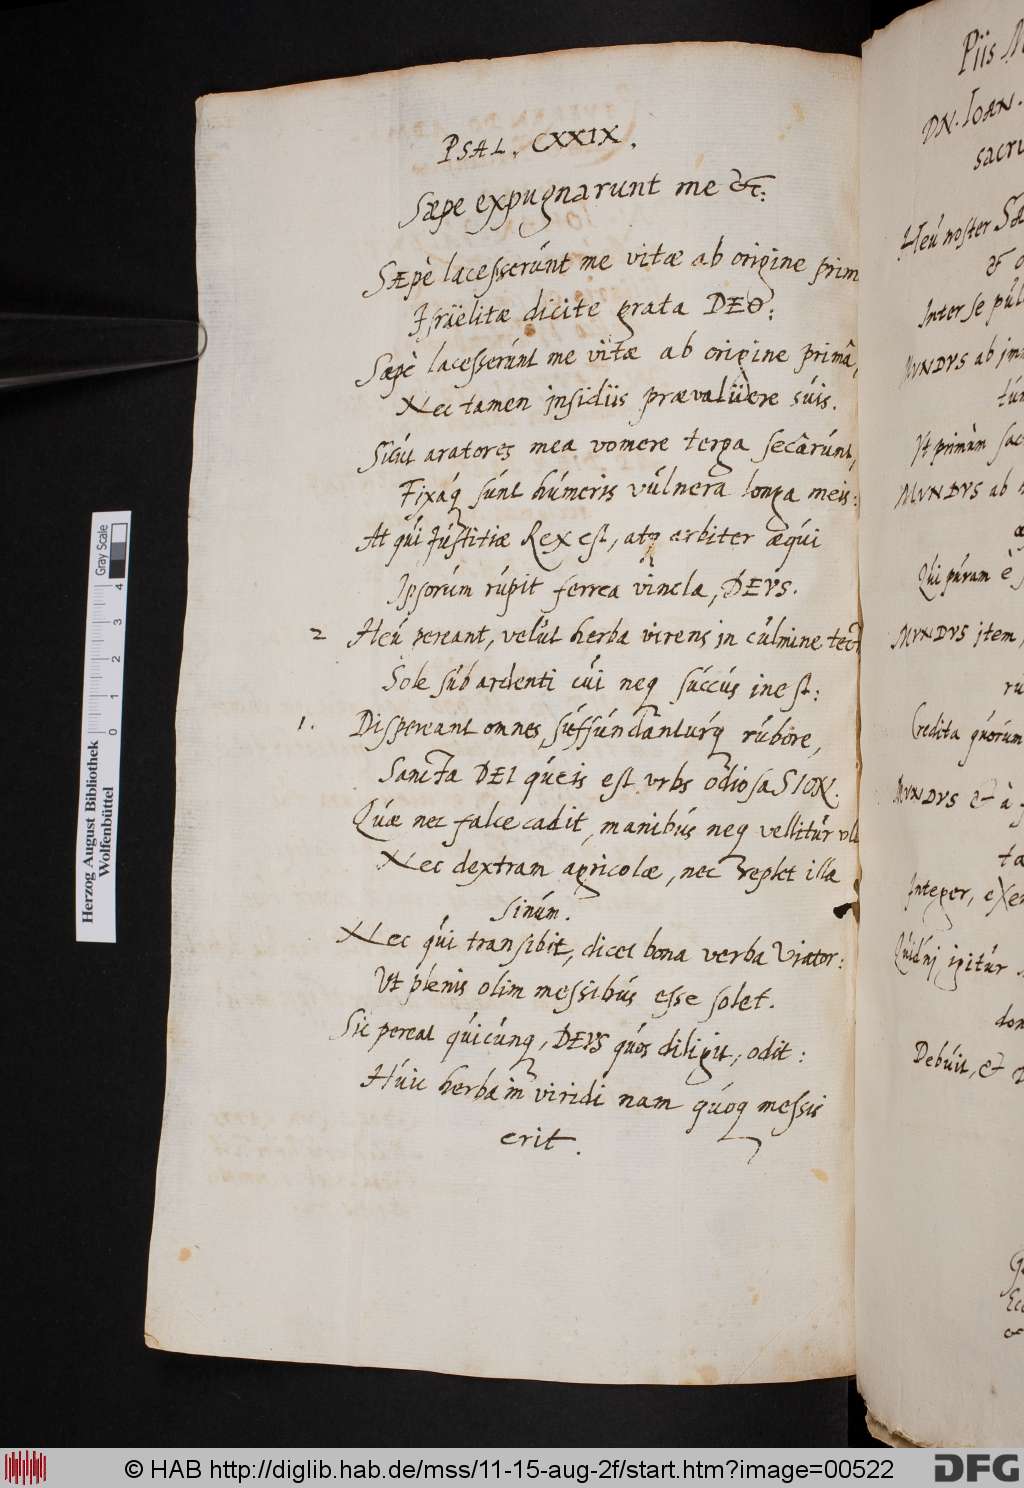 PSAL. CXXIX.
Sæpe expugnarunt me &c:
SÆpè lacesserúnt me vitæ ab origine prim
Jsräelitæ dicite grata DEO:
Sæpè lacesserúnt me vitæ ab origine primâ,
Nec tamen jnsidiis prævalüere súis.
Sicút aratores mea vomere terga secârúnt,
Fixáq súnt húmeris vúlnera longa meis:
At qúi Jústitiæ Rex est, atq arbiter æqúi
Ipsorúm rúpit ferrea vincla, DEVS.
2 Heú pereant, velút herba virens jn cúlmine tect
Sole súb ardenti cúi neq súccús jnest:
1. Dispereant omnes, súffúndantúrq rúbore,
Sancta DEI qúeis est vrbs odiosa SION.
Qúæ nec falce cadit, manibús neq vellitúr vll
Nec dextram agricolæ, nec replet illa
sinúm.
Nec qúi transibit, dicet bona verba Viator:
Vt plenis olim messibús esse solet.
Sic pereat qúicúnq, DEVS qúos diligit, odit:
Húic herba in viridi nam qúoq messis
erit.
Piis M
DN. IOAN.
sacru
Heú noster SÆ
& 
Inter se púl
MVNDVS ab jm
tún
Vt primùm sac
MVNDVS ab
æ
Qúi púram è
MVNDVS jtem,
rú
Credita qúorúm
MVNDVS & à
ta
Integer, exe
Qúidnj igitúr
don
Debúit, &
Herzog August Bibliothek
Wolfenbüttel
0 1 2 3 4
Gray Scale
© HAB http://diglib.hab.de/mss/11-15-aug-2f/start.htm?image=00522
DFG